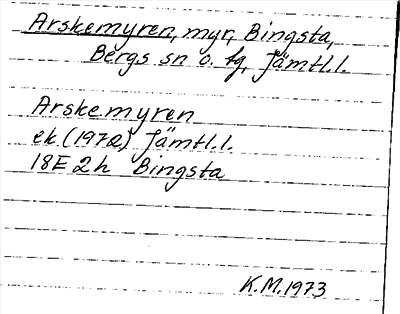 Arskemyren, myr, Bingsta,
Bergs sn o. tg, Jämtl.l.
Arskemyren
ek (1972) Jämtl.l.
18E 2h Bingsta
K.M.1973